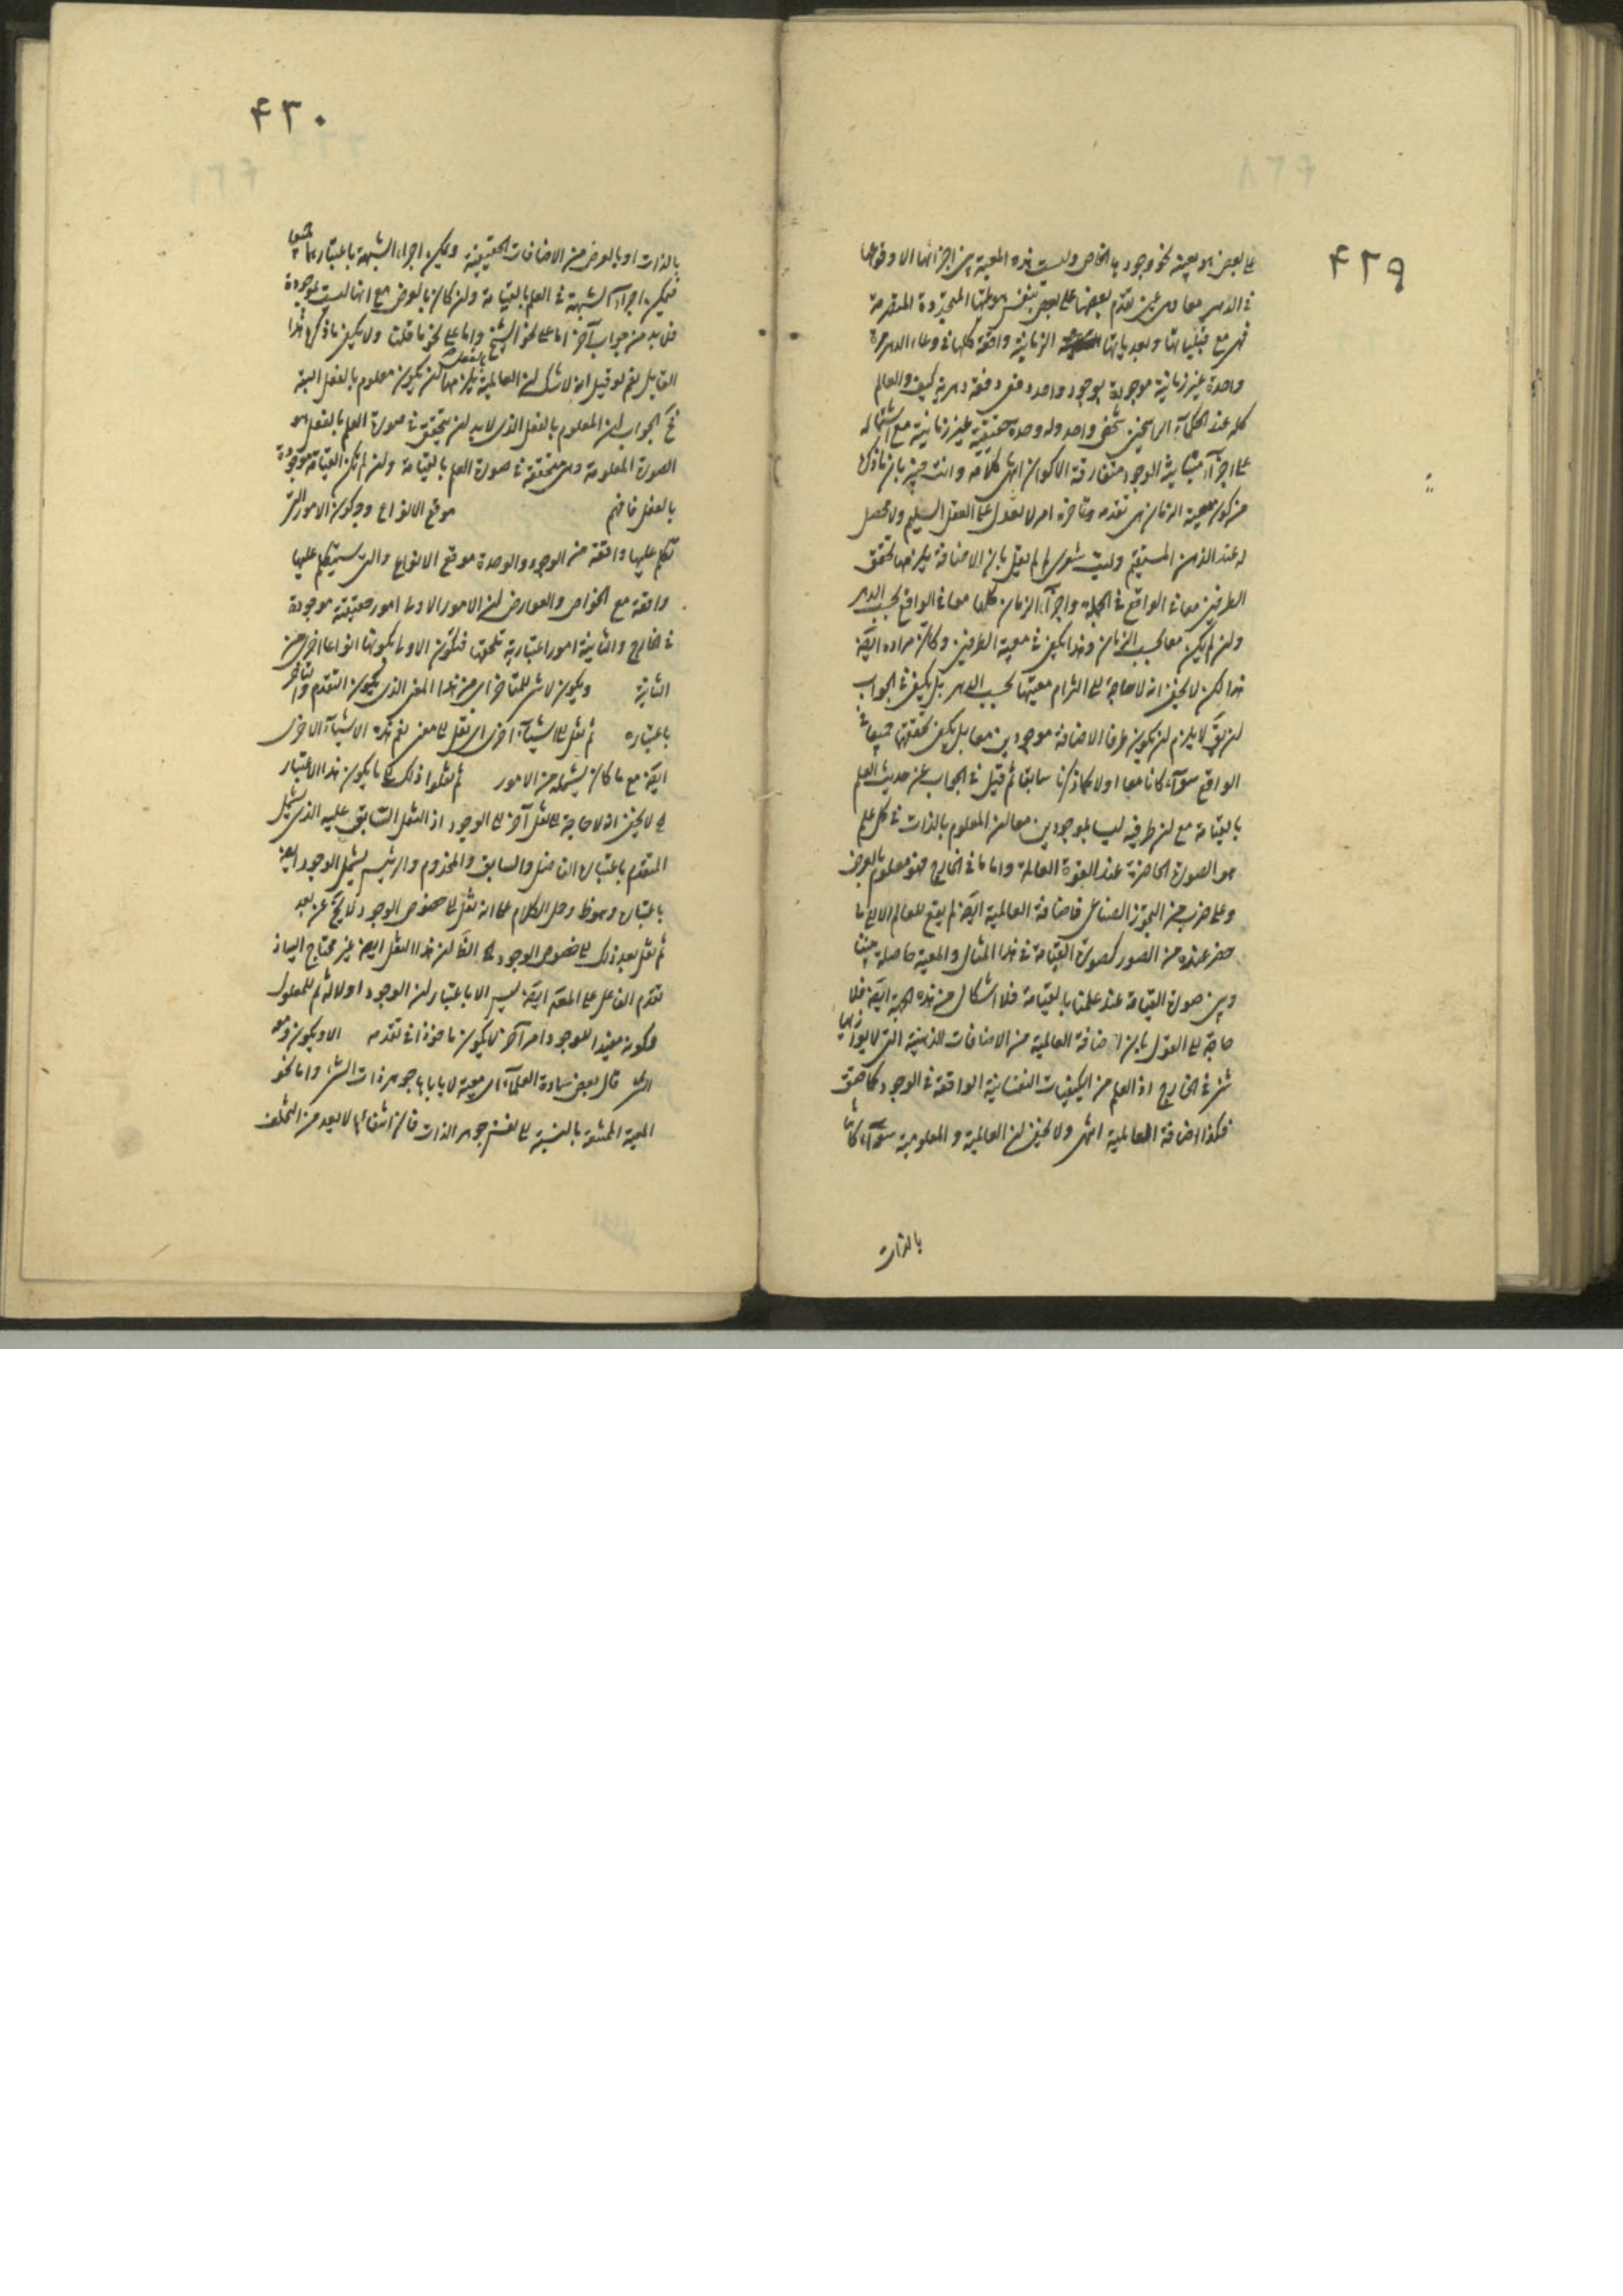 ۴۲۹
على بعض هو بعينه نحو وجودها الخاص وليست هذه المعية بين اجزائها الا وقوعها
في الدهر معا وهي عين تقدم بعضها على بعض بنفس هويتها المتجددة المتصرمة
فهي مع قبلياتها وبعدياتها الزمانية واقعة كلها في وعاء الدهر مرة
واحدة غير زمانية موجودة بوجود واحد دفعة دهرية كيف والعالم
كله عند الحكماء الراسخين شخص واحد وله وحدة حقيقية غير زمانية مع اشتماله
على اجزاء متباينة الوجود متفارقة الاكوان انتهى كلامه وانت خبير بان ما ذكره
من كون معية الزمان هي تقدمه وتاخره امر لا يعول عليه العقل السليم ولا محصل
له عند الذهن المستقيم وليت شعري لم لم يقل بان الاضافة يكفيها تحقق
الطرفين معا في الواقع في الجملة واجزاء الزمان كلها معا في الواقع بحسب الدهر
وان لم يكن معا بحسب الزمان وهذا يكفي في معية الطرفين وكان مراده ايضا
هذا لكن لا يخفى انه لا حاجة الى التزام معيتها بحسب الدهر بل يكفي في الجواب
ان يق لا يلزم ان يكون طرفا الاضافة موجودين معا بل يكفي تحققهما جميعا في
الواقع سواء كانا معا اولا كما ذكرنا سابقا ثم قيل في الجواب عن حديث العلم
بالقيامة مع ان طرفيه ليسا بموجودين معا ان المعلوم بالذات في كل علم
هو الصورة الحاضرة عند القوة العالمة واما ما في الخارج فهو معلوم بالعرض
وعلى ضرب من التجوز الصناعي فاضافة العالمية ايضا لم يقع للعالم الا الى ما
حضر عنده من الصور كصورة القيامة في هذا المثال والمعية حاصلة بيننا
وبين صورة القيامة عند علمنا بالقيامة فلا اشكال من هذه الجهة ايضا فلا
حاجة الى القول بان اضافة العالمية من الاضافات الذهنية التي لا يوازيها
شيء في الخارج اذ العلم من الكيفيات النفسانية الواقعة في الوجود كما حقق
فكذا اضافة العالمية انتهى ولا يخفى ان العالمية والمعلومية سواء كانتا
بالذات
۴۳۰
بالذات او بالعرض من الاضافات الحقيقية ويمكن اجراء الشبهة باعتبارهما جميعا
فيمكن اجراء الشبهة في العلم بالقيامة وان كان بالعرض مع انها ليست بموجودة
فلا بد من جواب آخر اما على نحو الشيخ واما على نحو ما قلنا ولا يكفي ما ذكره هذا
القايل نعم لو قيل انه لا شك ان العالمية بالفعل يلزمها ان يكون معلوم بالفعل البتة
فح الجواب ان المعلوم بالفعل الذي لا بد ان يتحقق في صورة العلم بالفعل هو
الصورة المعلومة وهي متحققة في صورة العلم بالقيامة وان لم تكن القيامة موجودة
بالفعل فافهم موقع الانواع وجه كون الامور التي
تكلم عليها واقعة من الوجود والوحدة موقع الانواع والتي سيتكلم عليها
واقعة مع الخواص والعوارض ان الامور الاولى امور حقيقية موجودة
في الخارج والثانية امور اعتبارية تلحقها فتكون الاولى بكونها انواعا احرى من
الثانية ويكون لا شيء للمتاخر اي من هذا المعنى الذي يكون التقدم والتاخر
باعتباره ثم نقل الى اشياء اخرى اي نقل الى معنى يعم هذه الاشياء الاخرى
ايضا مع ما كان يشمله من الامور ثم نقلوا ذلك الى ما يكون هذا الاعتبار
له لا يخفى انه لا حاجة الى نقل آخر الى الوجود اذ النقل السابق عليه الذي يشمل
المتقدم باعتبار الفاضل والسابق والمخدوم والرئيس يشمل الوجود ايضا
باعتباره وهو ظ وحمل الكلام على انه نقل الى خصوص الوجود لا يخ عن بعد
ثم نقل بعد ذلك الى خصوص الوجود الى ان هذا النقل ايضا غير محتاج اليه اذ
تقدم الفاعل على المعلول ايضا ليس الا باعتبار ان الوجود اولا له ثم للمعلول
وكونه مفيدا للوجود امر آخر لا يكون ماخوذا في تقدمه الا ويكون معه
الشيء قال بعض سادة العلماء اي معية لا ياباها جوهر ذات الشيء واما نحو
المعية الممتنعة بالنسبة الى نفس جوهر الذات فان انتفائها لا يعد من التخلف